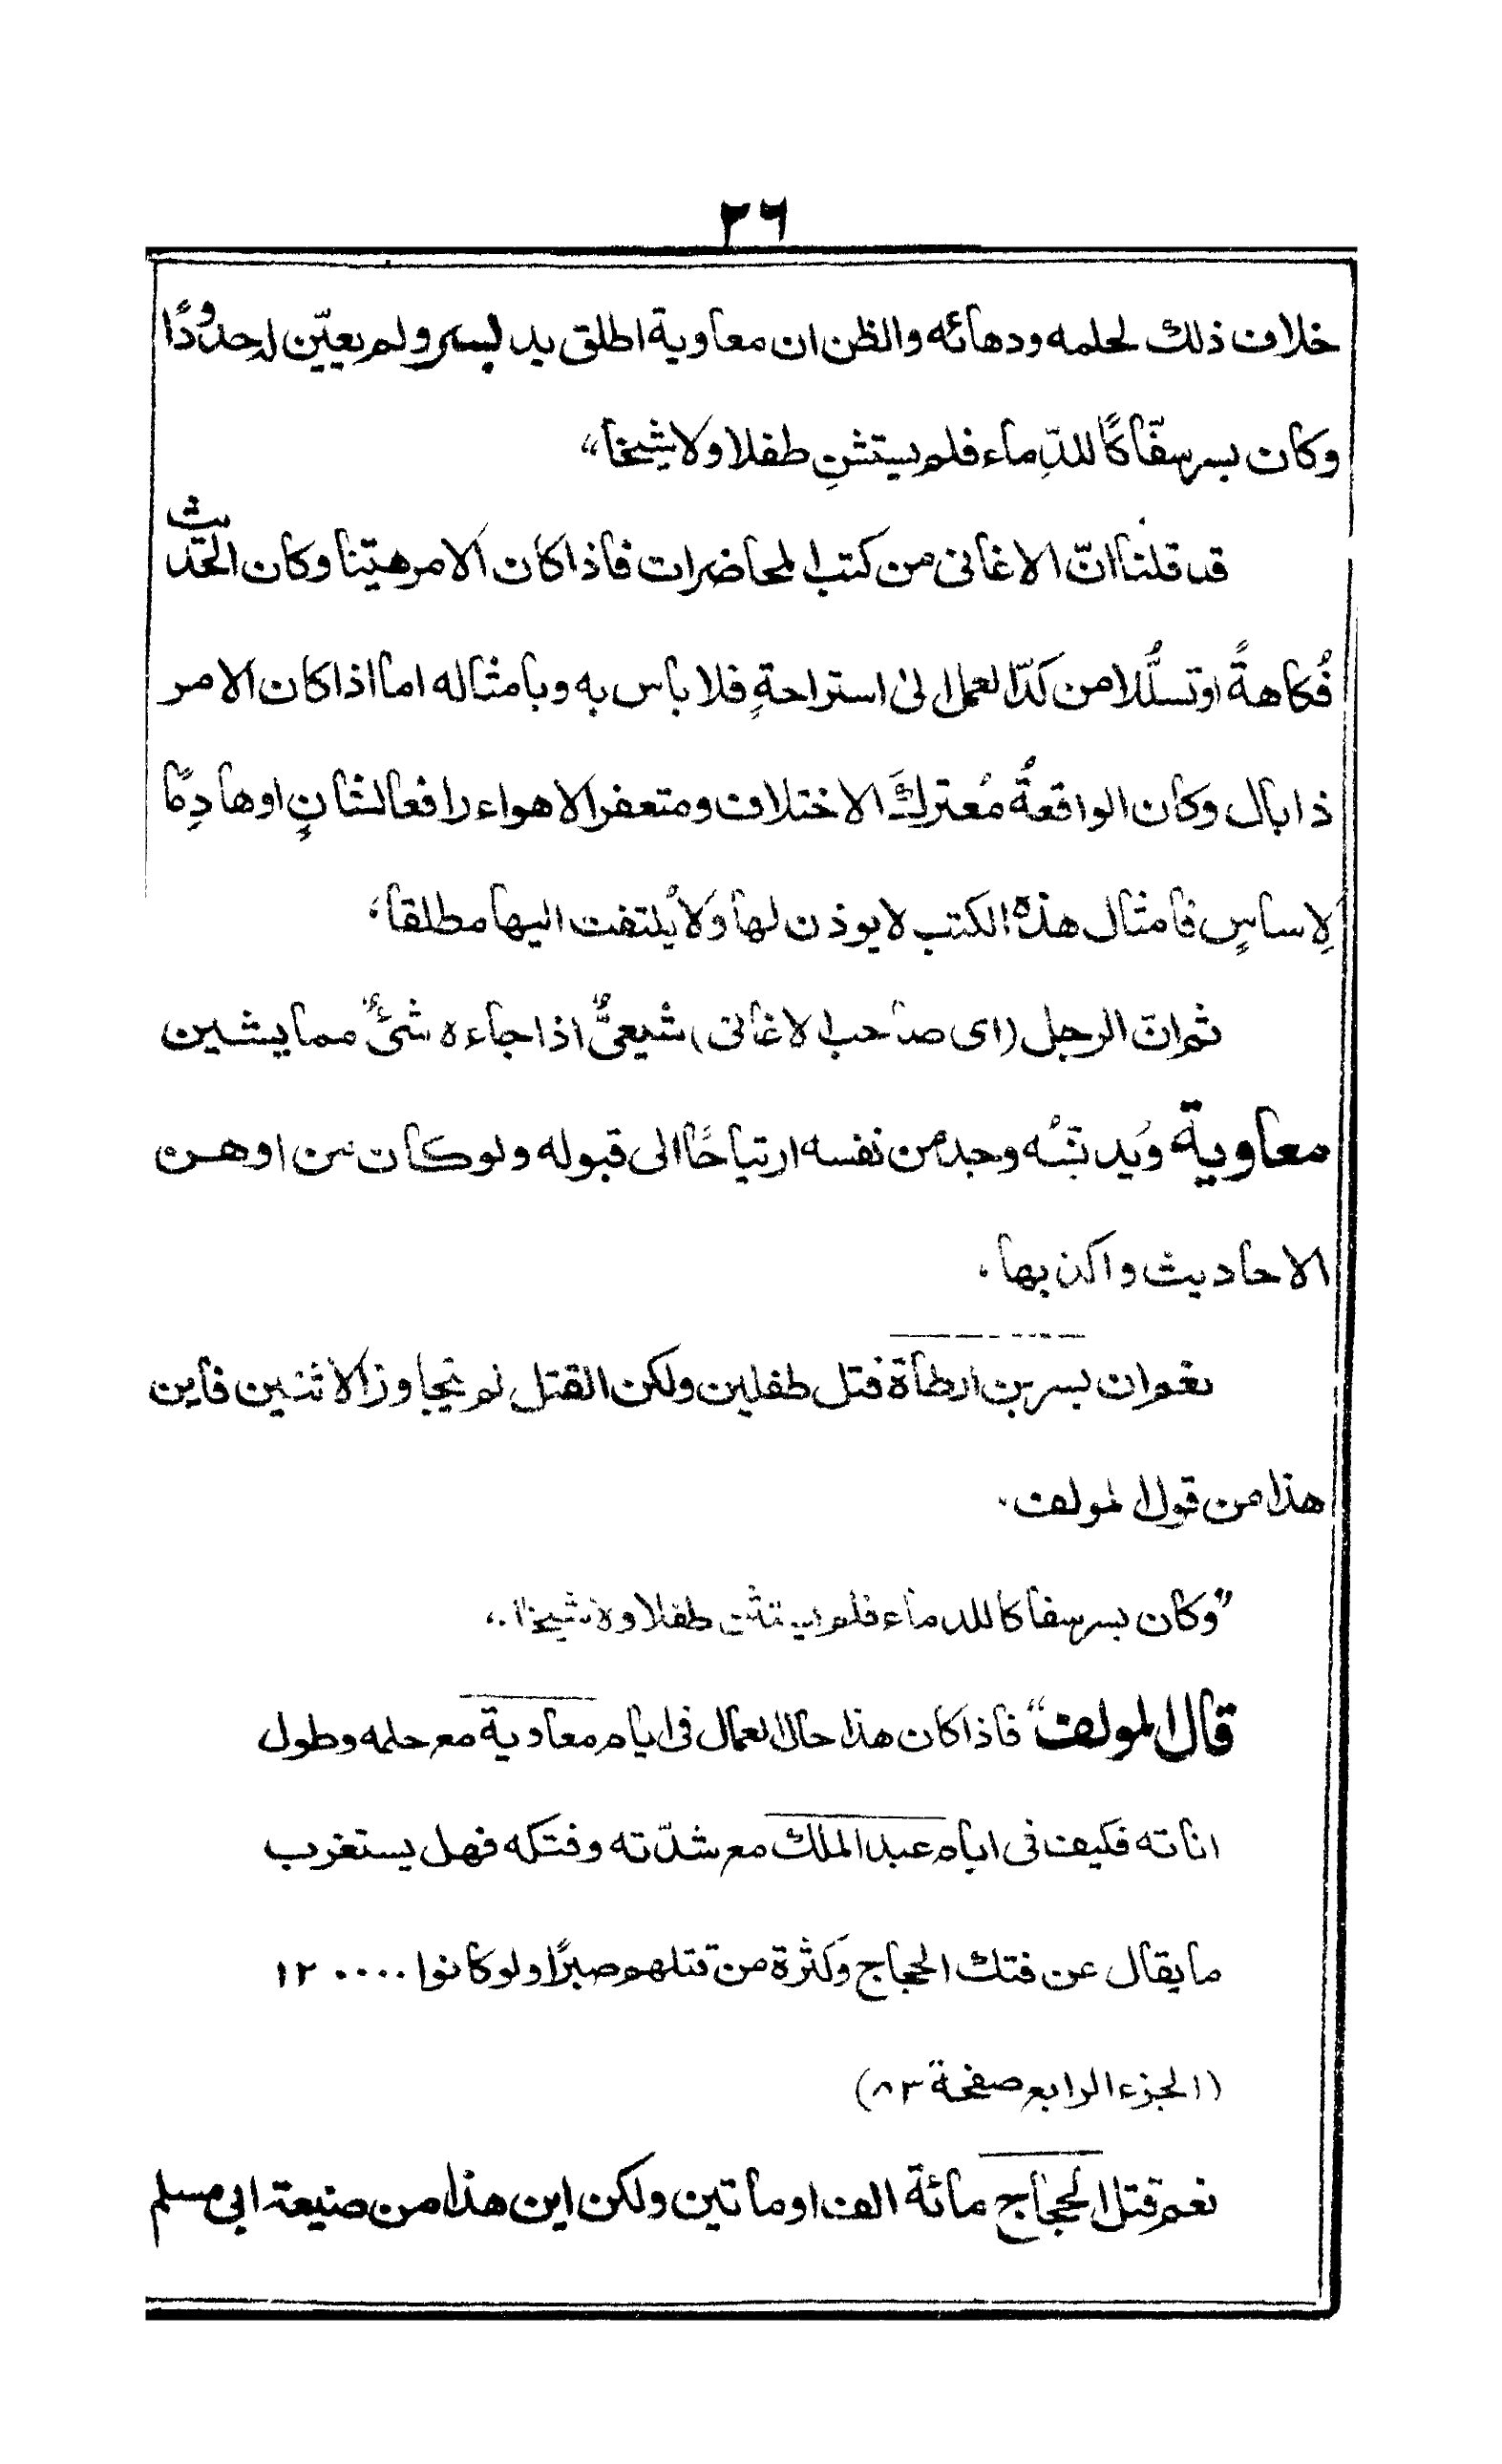 ٢٦
خلاف ذلك لحلمه ودهائه والظن ان معاوية اطلق يد لبسر ولم يعيّن له حدودًا
وكان بسر سفّاكًا للدِّماء فلم يستثنِ طفلا ولا شيخا"
قد قلنا انّ الاغانى من كتب المحاضرات فاذا كان الامر هيّنا وكان الحديث
فُكاهةً او تسلُّلا من كدّ العمل الىٰ استراحةٍ فلا باس به وبامثاله اما اذا كان الامر
ذا بال وكان الواقعةُ مُعتركَ الاختلاف ومتعفر الاهواء رافعا لشانٍ او هادِمًا
لِاساسٍ فامثال هذه الكتب لا يوذن لها وَلا يُلتفت اليها مطلقا،
ثم انّ الرجل (اى صاحب الاغانى) شيعىٌّ اذا جاءه شئٌ مما يشين
معاوية وَيدنّسُه وجد من نفسه ارتياحًا الى قبوله ولو كان من اوهن
الاحاديث واكذبها.
نعم ان بسر بن ارطأة قتل طفلين ولكن القتل لم يتجاوز الاثنين فاين
هذا من قول المولف.
"وكان بسر سفاكا للدماء فلم يستثن طفلا ولا شيخا،،
قال المولف" فاذا كان هذا حال العمال فى ايام معاوية مع حلمه وطول
اناته فكيف فى ايام عبد الملك مع شدّته وفتكه فهل يستغرب
ما يقال عن فتك الحجاج وكثرة من قتلهم صبرًا ولو كانوا ١٢٠٠٠٠
(الجزء الرابع صفحة ٨٣)
نعم قتل الحجاج مائة الف او ماتين ولكن اين هذا من صنيعة ابى مسلم